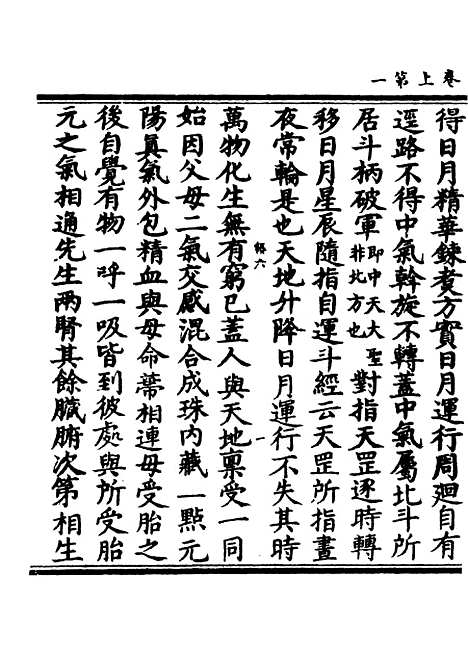 卷上第一
得日月精華鍊煑方實日月運行周廻自有
逕路不得中氣斡旋不轉蓋中氣屬北斗所
居斗柄破軍即中天大聖非北方也對指天罡逐時轉
移日月星辰隨指自運斗經云天罡所指晝
夜常輪是也天地升降日月運行不失其時
萬物化生無有窮已蓋人與天地稟受一同
始因父母二氣交感混合成珠内藏一點元
陽真氣外包精血與母命蒂相連母受胎之
後自覺有物一呼一吸皆到彼處與所受胎
元之氣相通先生兩腎其餘臟腑次第相生